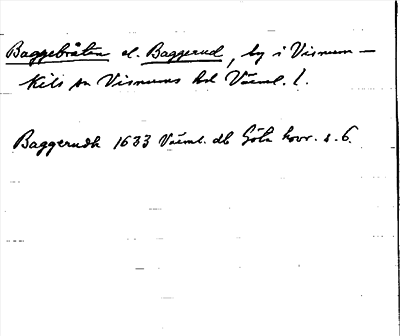 Baggebråten el. Baggerud, by i Visnum-
Kils sn Visnums hd Värml. l.
Baggerudh 1633 Värml. db Göta hovr. s. 6.